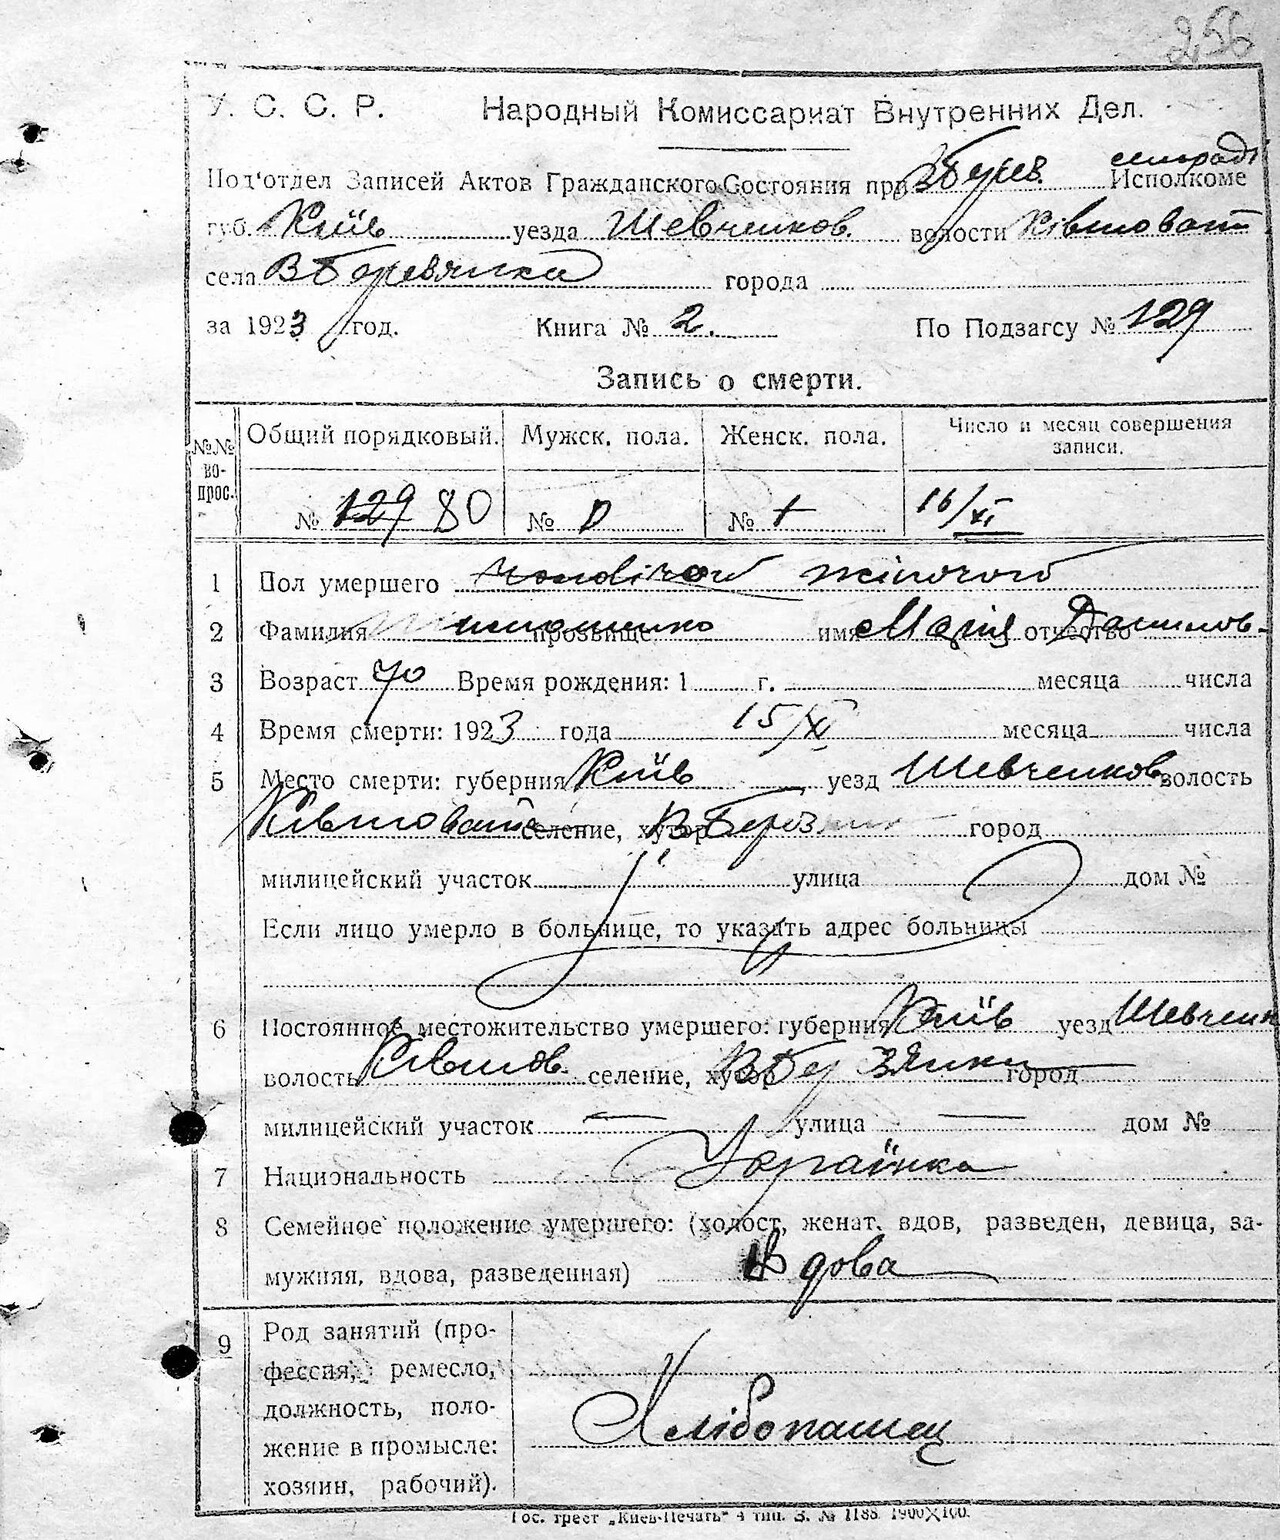 256
У. С. С. Р. Народный Комиссариат Внутренних Дел.
сельраді
Под'отдел Записей Актов Гражданского Состояния при В Берез. Исполкоме
губ. Київ уезда Шевченков. волости Ківшоват
села В Березянка города
за 1923 год. Книга № 2. По Подзагсу № 129
Запись о смерти.
№№ вопрос. Общий порядковый. Мужск. пола. Женск. пола. Число и месяц совершения записи.
№ 129 80 № № 1 16/XI
1 Пол умершего жіночого
2 Фамилия прозвище имя Марія отчество Данилов.
3 Возраст 70 Время рождения: 1 г. месяца числа
4 Время смерти: 1923 года 15/XI месяца числа
5 Место смерти: губерния Київ уезд Шевченков волость
Ківшоват селение, хутор В Берез город
милицейский участок улица дом №
Если лицо умерло в больнице, то указать адрес больницы
6 Постоянное местожительство умершего: губерния Київ уезд Шевченк
волость Ківшов. селение, хутор В Бе зянки город
милицейский участок — улица — дом №
7 Национальность Українка
8 Семейное положение умершего: (холост, женат, вдов, разведен, девица, за-
мужняя, вдова, разведенная) Вдова
9 Род занятий (про-
фессия, ремесло,
должность, поло-
жение в промысле:
хозяин, рабочий).
Хлібопашец
Гос. трест „Киев-Печать" 4 тип. З. № 1188. 1900×100.